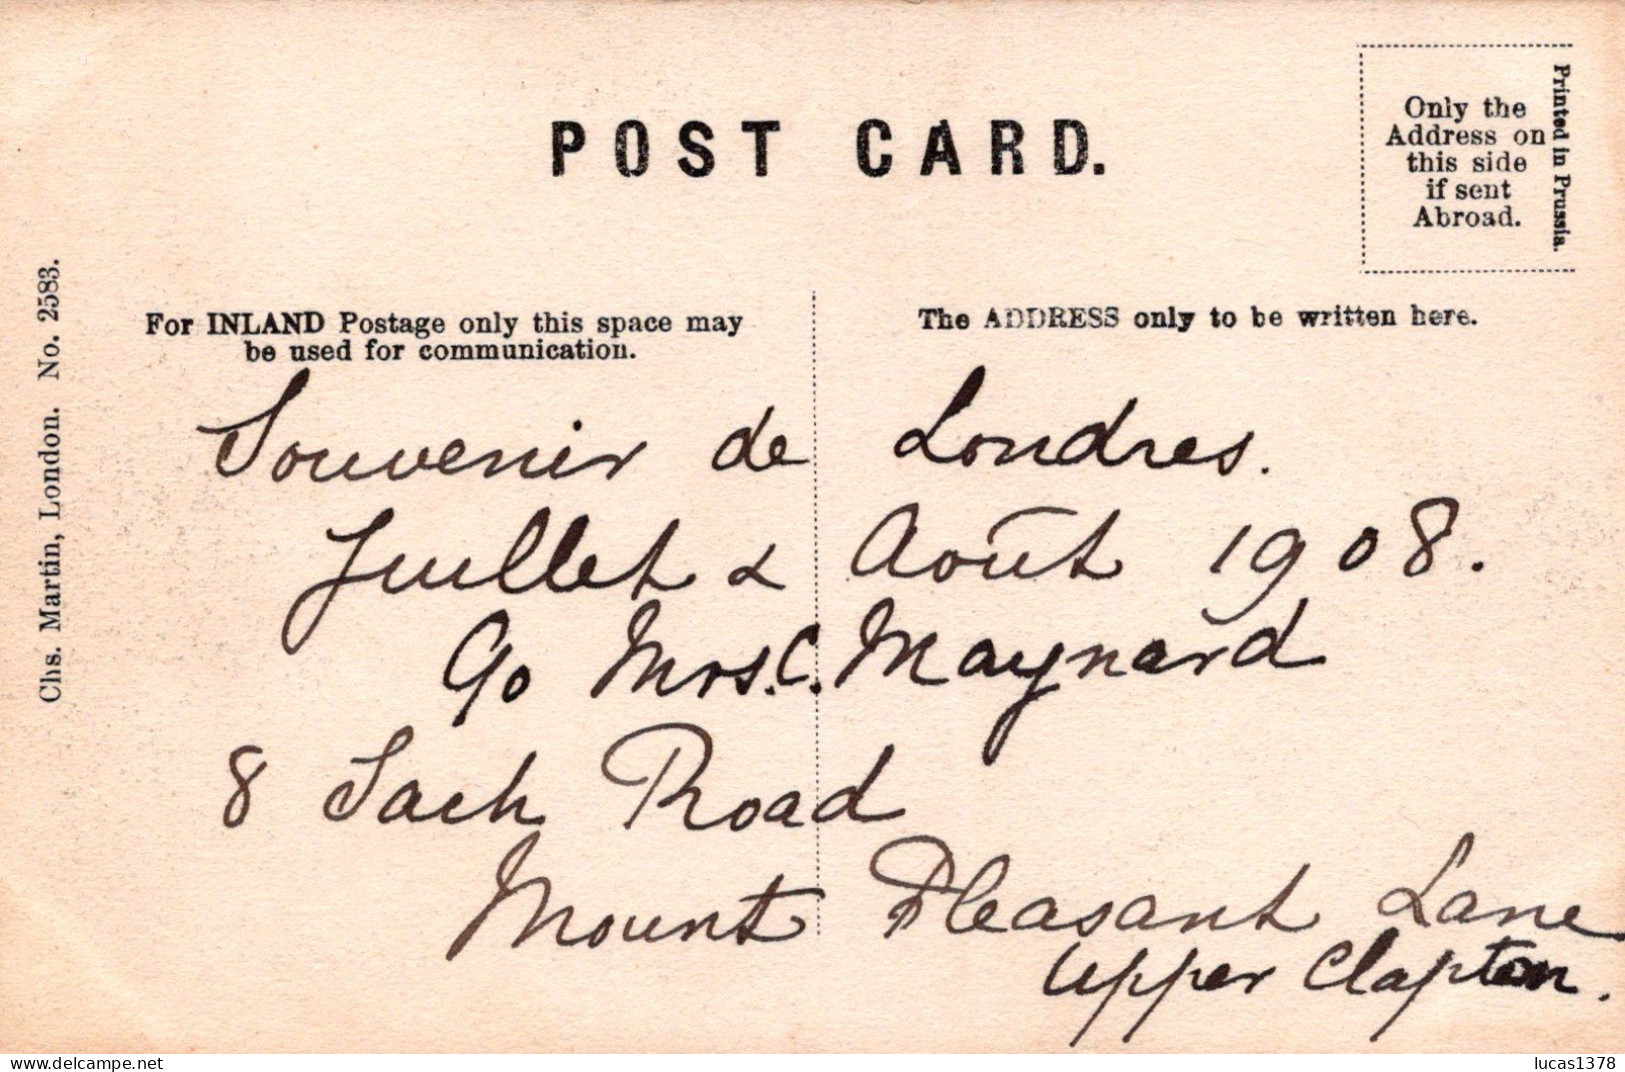 POST CARD.
Only the
Address on
this side
if sent
Abroad.
Printed in Prussia.
Chs. Martin, London. No. 2583.
For INLAND Postage only this space may
be used for communication.
The ADDRESS only to be written here.
Souvenir de Londres.
Juillet & Août 1908.
c/o Mrs. C. Maynard
8 Sach Road
Mount Pleasant Lane
Upper Clapton.
www.delcampe.net
lucas1378